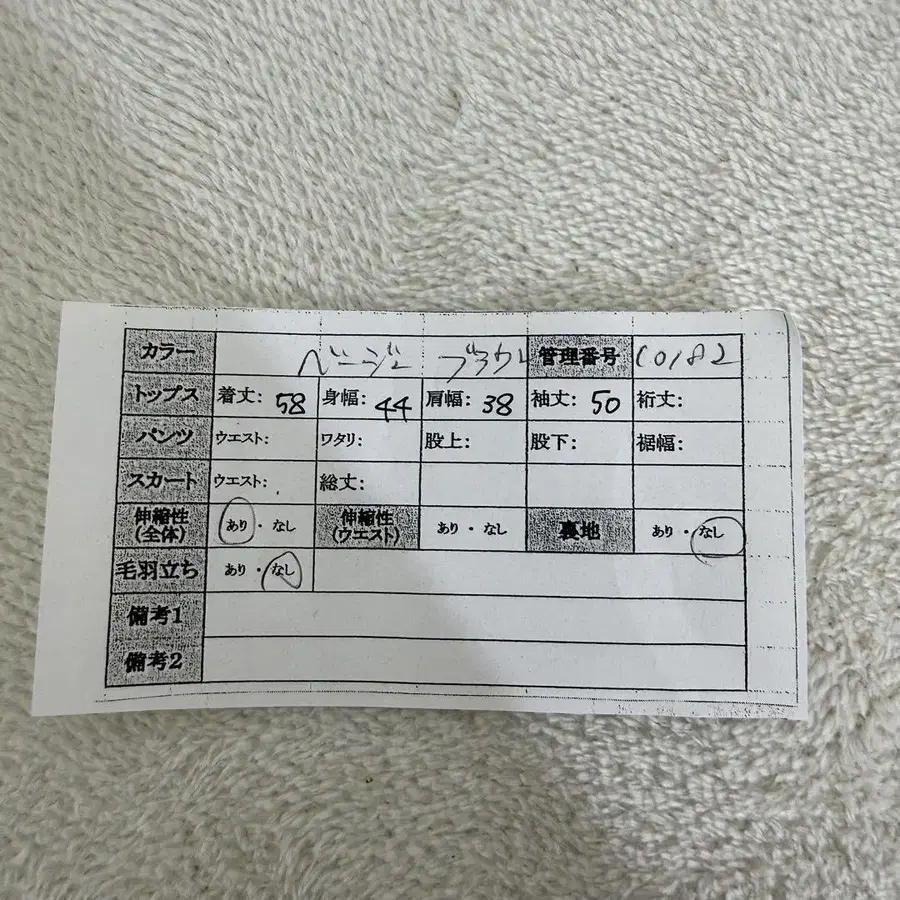 カラー ベージュ ブラウン 管理番号 C0182
トップス 着丈: 58 身幅: 44 肩幅: 38 袖丈: 50 裄丈:
パンツ ウエスト: ワタリ: 股上: 股下: 裾幅:
スカート ウエスト: 総丈:
伸縮性 (全体) あり・なし 伸縮性 (ウエスト) あり・なし 裏地 あり・なし
毛羽立ち あり・なし
備考1
備考2